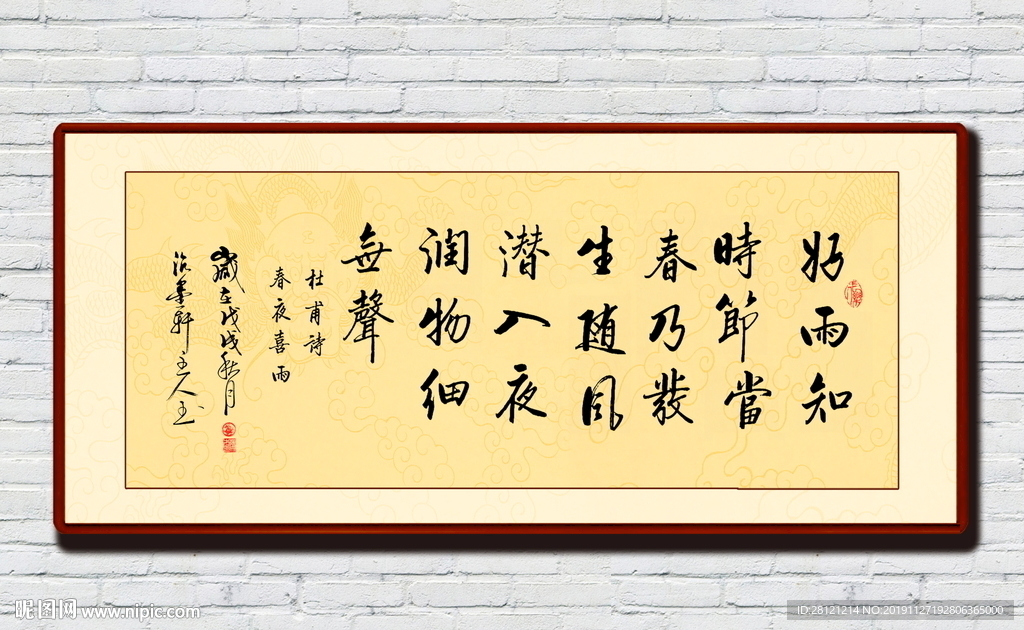 好雨知
時節當
春乃發
生随风
潜入夜
润物细
無聲
杜甫诗
春夜喜雨
歲在戊戌秋月
墨轩主人玉
昵图网 www.nipic.com
ID:28121214 NO:20191127192806365000